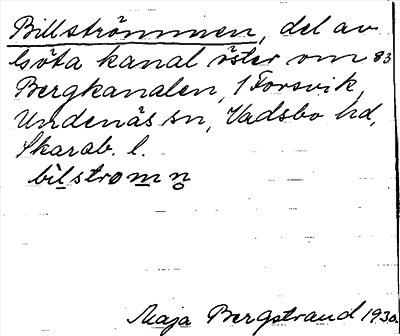 Billströmmen, del av
Göta kanal öster om 83
Bergkanalen, i Forsvik,
Undenäs sn, Vadsbo hd,
Skarab. l.
bilstromn
Maja Bergstrand 1930